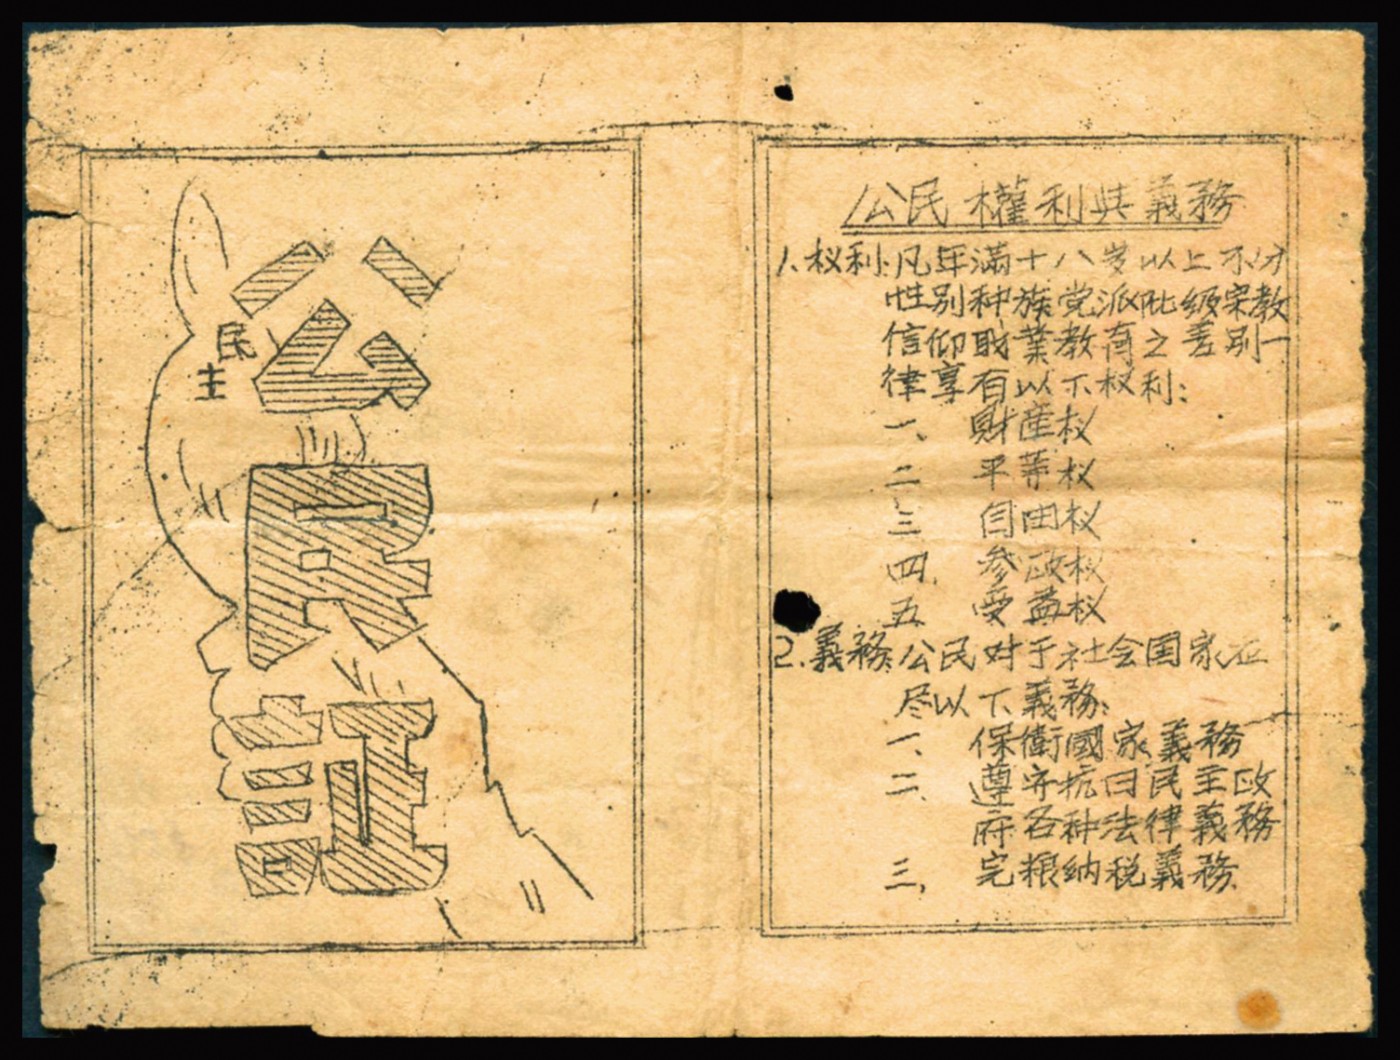 民
主
公
民
証
公民權利與義務
1、权利:凡年满十八岁以上不分
性别种族党派阶级宗教
信仰职業教育之差别一
律享有以下权利:
一、 财產权
二 平等权
三 自由权
四、 参政权
五 受益权
2.義務:公民对于社会国家应
尽以下義務:
一、 保衛國家義務
二、 遵守抗日民主政
府各种法律義務
三, 完粮纳税義務.